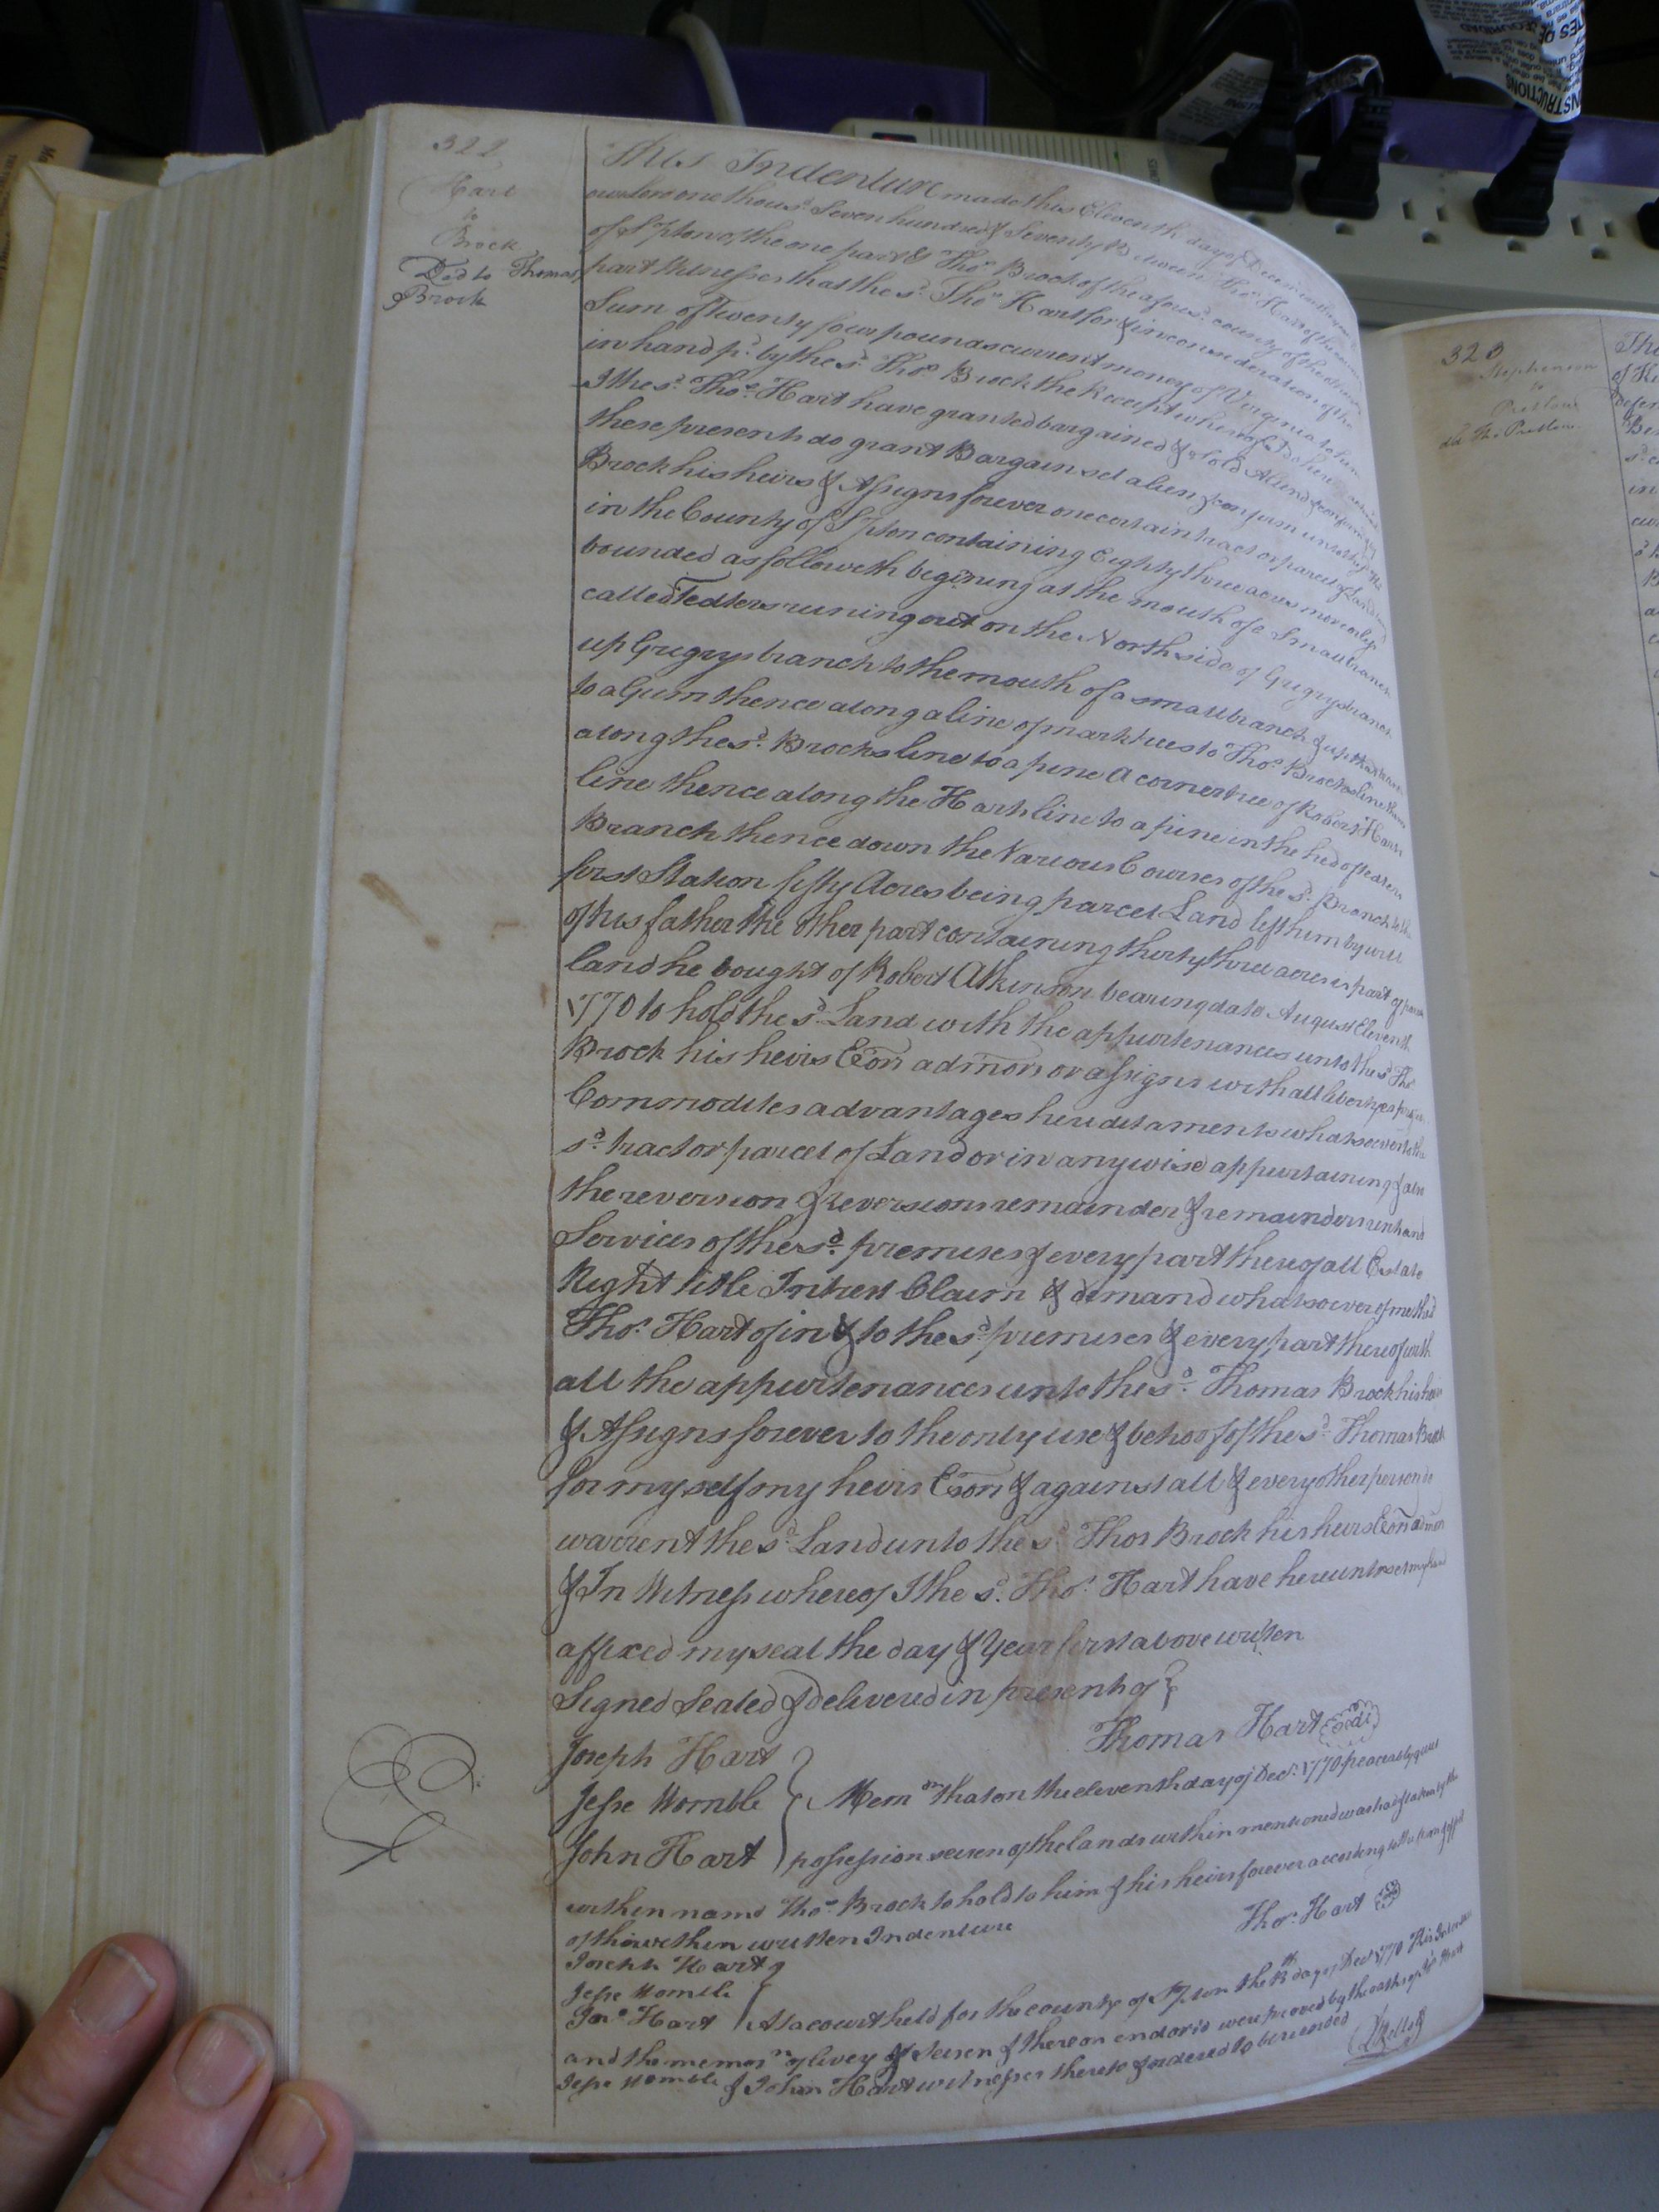 322
Hart
to
Brock
Ded to Thomas
Brock
This Indenture made this Eleventh day of Decem
our Lord one thous.d Seven hundred & Seventy Between Tho.s Hart of the
of S.pton of the one part & Tho.s Brock of the afores.d county of the other
part Witnesses that the s.d Tho.s Hart for & in consideration of the
Sum of Twenty four pounds current money of Virginia to him
in hand p.d by the s.d Tho.s Brock the Receipt whereof I do hereby
I the s.d Tho.s Hart have granted bargained & sold Aliend & confirm'd & by
these presents do grant Bargain sel alien & confirm unto the s.d Tho.s
Brock his heirs & Assigns forever one certain tract or parcel of Land
in the County of S.pton containing Eighty three acres more or less
bounded as followeth begining at the mouth of a Small branch
called Tedters runing out on the North side of Gregrys branch
up Gregrys branch to the mouth of a small branch & up that branch
to a Gum thence along a line of mark trees to Tho.s Brocks line thence
along the s.d Brocks line to a pine A corner tree of Robert Harts
line thence along the Harts line to a pine in the hed of
Branch thence down the Various Courses of the s.d Branch to the
first Station fifty Acres being parcel Land left him by will
of his father the other part containing thirty three acres is part of
land he bought of Robert Atkinson bearing date August Eleventh
1770 to hold the s.d Land with the appurtenances unto the s.d Tho.s
Brock his heirs Exors admors or assigns with all libertyes
Commodites advantages hereditaments whatsoever to the
s.d tract or parcel of Land or in any wise appurtaining & also
the reversion & reversions remainder & remainders
Services of the s.d premises & every part thereof all Estate
Right title Intrest Claim & demand whatsoever of me the s.d
Tho.s Hart of in & to the s.d premises & every part thereof with
all the appurtenances unto the s.d Thomas Brock his heirs
& Assigns forever to the only use & behoof of the s.d Thomas Brock
for my self my heirs Exors & against all & every other person do
warrent the s.d Land unto the s.d Thos Brock his heirs Exors admors
& In Witness whereof I the s.d Tho.s Hart have hereunto set my hand
affixed my seal the day & Year first above writen
Signed Sealed & delivered in presents of
Thomas Hart
Joseph Hart
Jesse Womble
John Hart
Mem.dm that on the eleventh day of Dec.r 1770 peaceably quiet
possession seisen of the lands within mentioned was had & taken by the
within namd Tho.s Brock to hold to him & his heirs forever according to the
of the within written Indenture
Tho.s Hart
Joseph Hart
Jesse Womble
Jno. Hart
At a court held for the county of S.pton the 13th day of Dec.r 1770 This Indenture
and the memor.m of livery & Seisen thereon endors'd were proved by the oaths of Jo.s Hart
Jesse Womble & John Hart witnesses thereto & ordered to be recorded
323
Stephenson
to
Pretlow